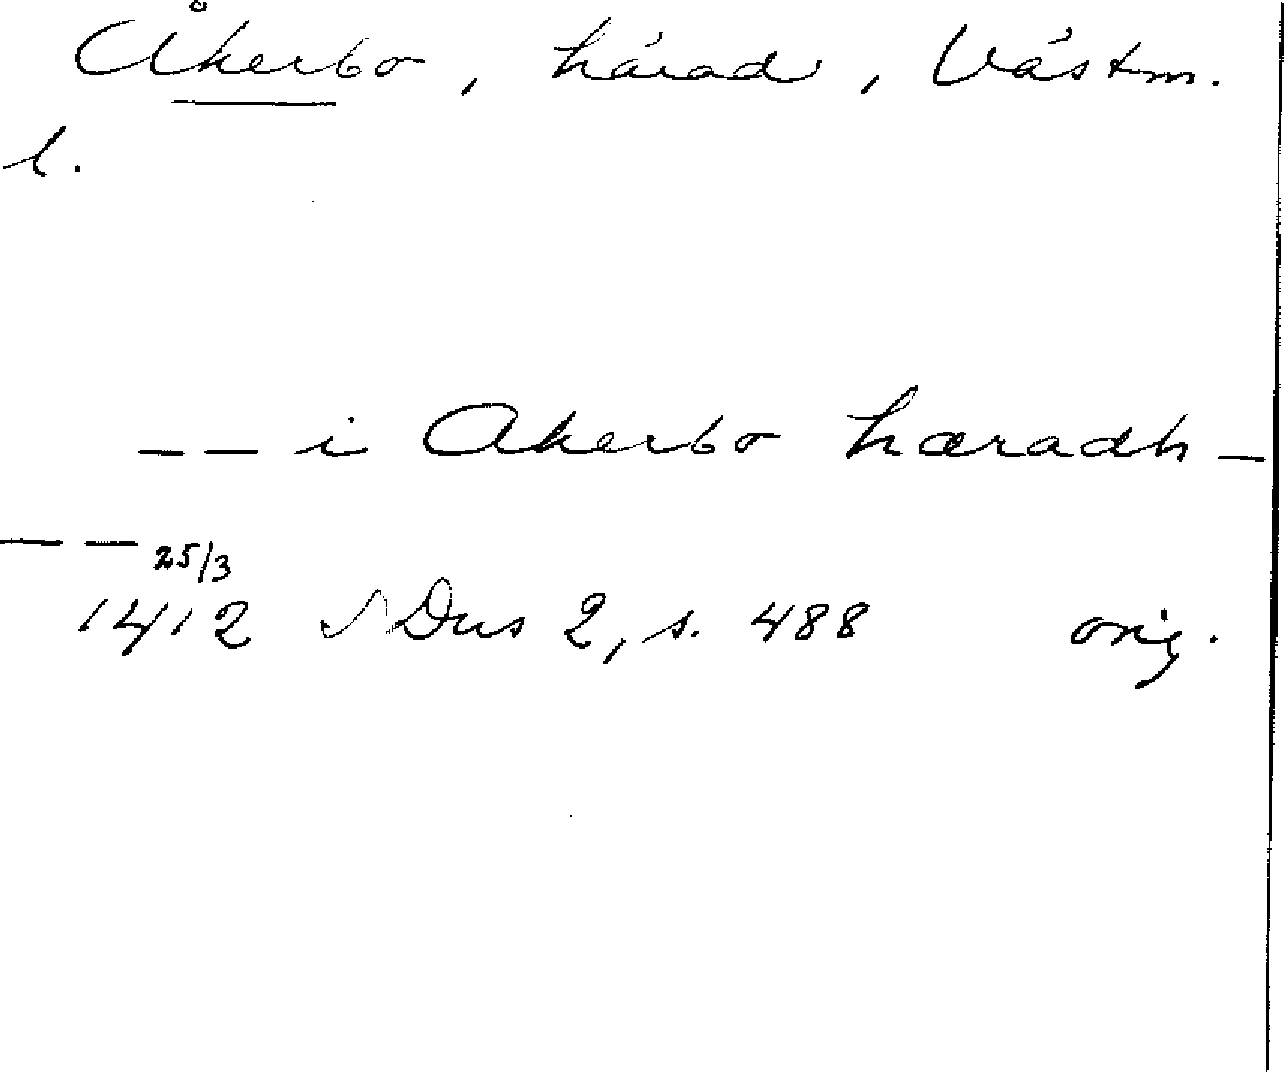 Åkerbo, härad, Västm.
l.
— — i Akerbo hæradh —
— — 25/3
1412 SDns 2, s. 488 orig.